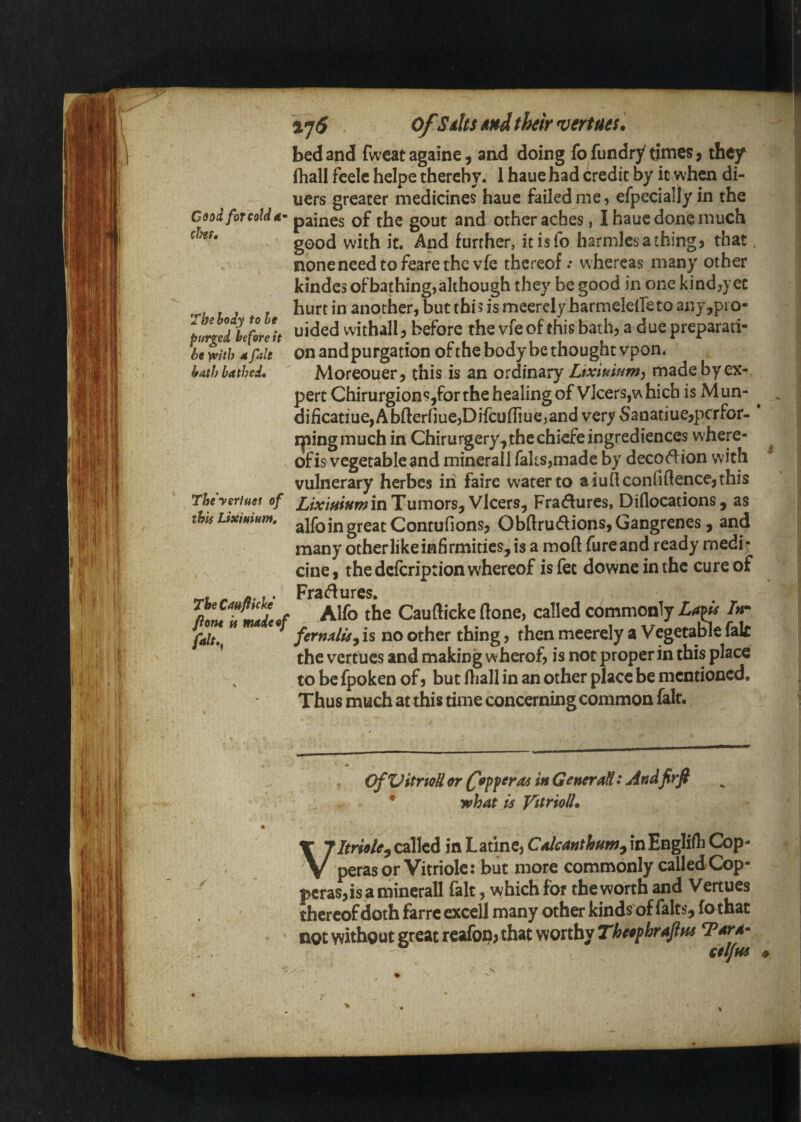 276 Of Salts and their vertues.
bed and ſweat againe, and doing ſo ſundry times, they
ſhall feele helpe thereby. I haue had credit by it when di-
uers greater medicines haue failed me, eſpecially in the
Good for cold a-
ches.
paines of the gout and other aches, I haue done much
good with it. And further, it is ſo harmles a thing, that
none need to feare the vſe thereof: whereas many other
kindes of bathing, although they be good in one kind, yet
hurt in another, but this is meerely harmeleſſe to any, pro-
The body to be
purged before it
be with a ſalt
bath bathed.
uided withall, before the vſe of this bath, a due preparati-
on and purgation of the body be thought vpon.
Moreouer, this is an ordinary Lixiuium, made by ex-
pert Chirurgions, for the healing of Vlcers, which is Mun-
dificatiue, Abſterſiue, Diſcuſſiue, and very Sanatiue, perfor-
ming much in Chirurgery, the chiefe ingrediences where-
of is vegetable and minerall ſalts, made by decoction with
vulnerary herbes in faire water to a iuſt conſiſtence, this
The vertues of
this Lixiuium.
Lixiuium in Tumors, Vlcers, Fractures, Diſlocations, as
alſo in great Contuſions, Obſtructions, Gangrenes, and
many other like infirmities, is a moſt ſure and ready medi-
cine, the deſcription whereof is ſet downe in the cure of
Fractures.
The Cauſticke
ſtone is made of
ſalt.
Alſo the Cauſticke ſtone, called commonly Lapis In-
fernalis, is no other thing, then meerely a Vegetable ſalt
the vertues and making wherof, is not proper in this place
to be ſpoken of, but ſhall in an other place be mentioned.
Thus much at this time concerning common ſalt.
Of Vitrioll or Copperas in Generall: And firſt
what is Vitrioll.
VItriole, called in Latine, Calcanthum, in Engliſh Cop-
peras or Vitriole: but more commonly called Cop-
peras, is a minerall ſalt, which for the worth and Vertues
thereof doth farre excell many other kinds of ſalts, ſo that
not without great reaſon, that worthy Theophraſtus Para-
celſus